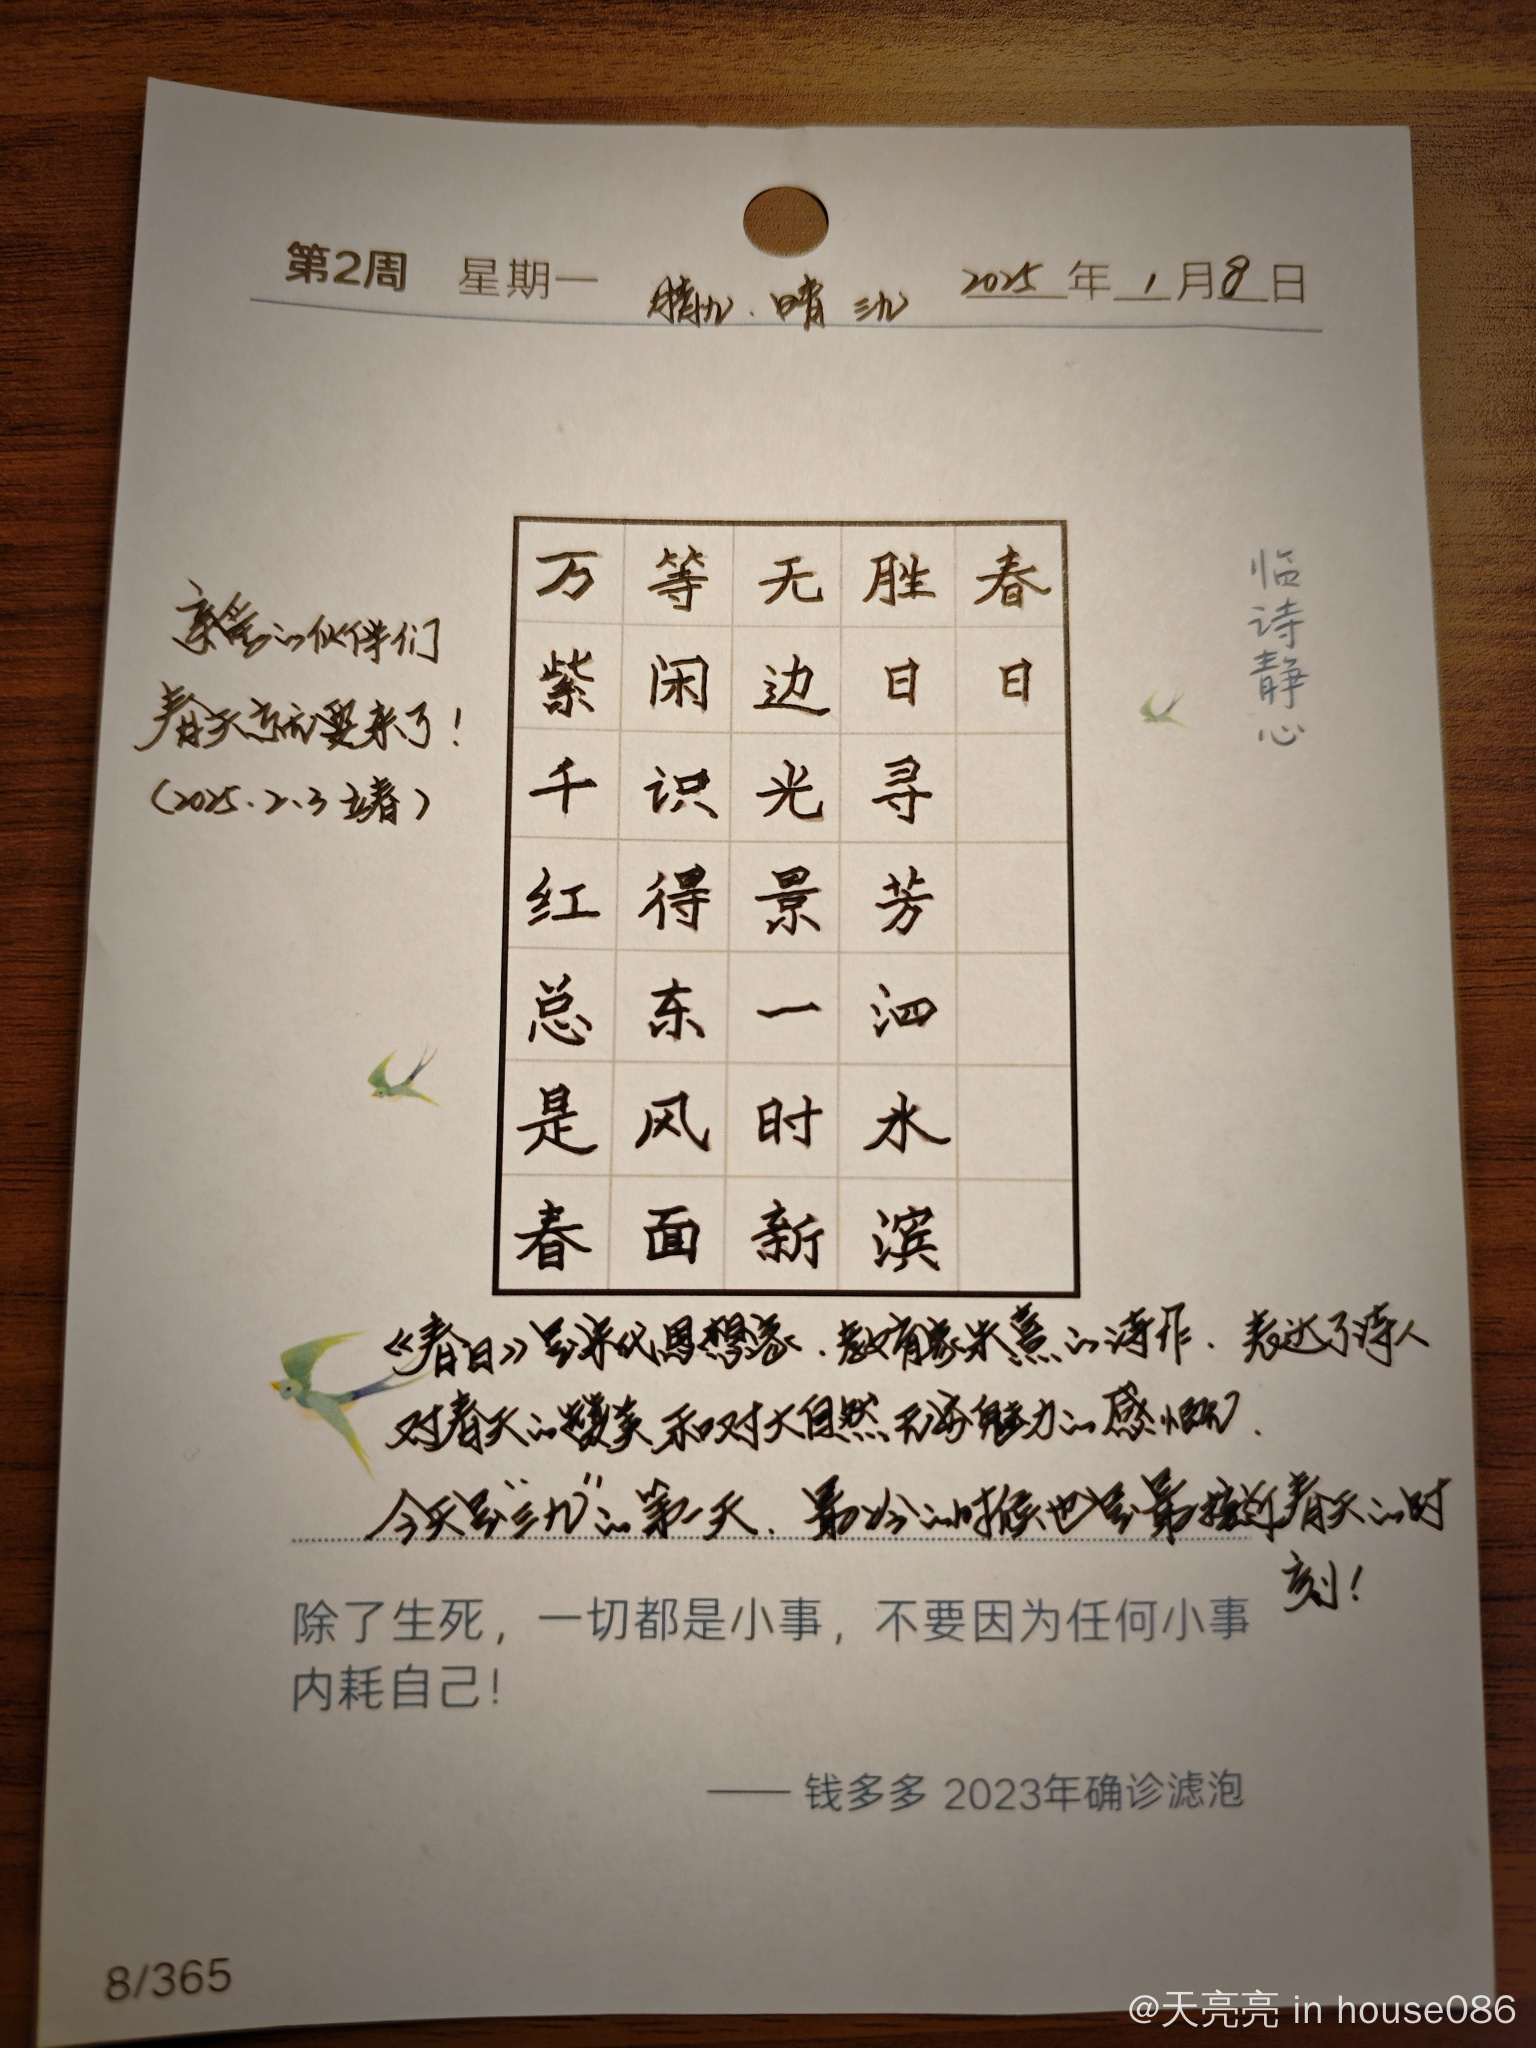 第2周 星期一 腊九.晴 三九 2025年1月8日
临诗静心
春日
胜日寻芳泗水滨
无边光景一时新
等闲识得东风面
万紫千红总是春
亲爱的伙伴们
春天就要来了！
（2025.2.3立春）
《春日》是宋代思想家、教育家朱熹的诗作.表达了诗人
对春天的赞美和对大自然无穷魅力的感悟.
今天是“三九”的第一天.最冷的时候也是最接近春天的时
刻！
除了生死，一切都是小事，不要因为任何小事
内耗自己！
—— 钱多多 2023年确诊滤泡
8/365
@天亮亮 in house086